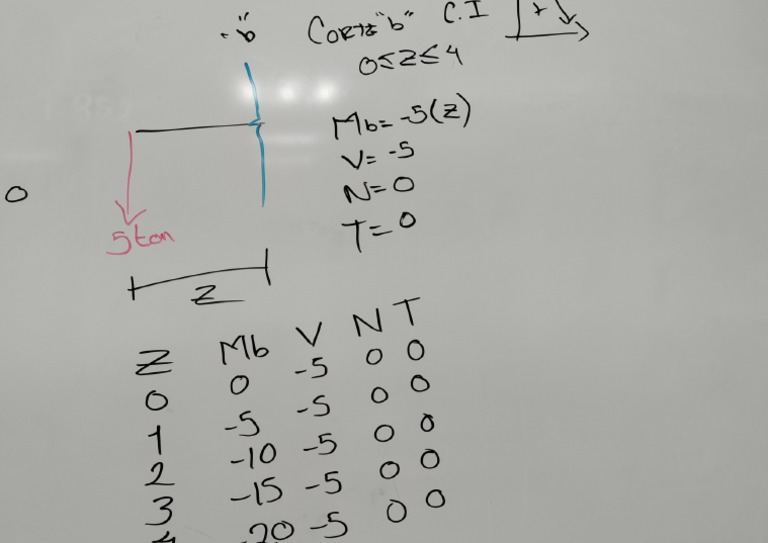 "b" Corte "b" C.I +
0≤z≤4
Mb= -5(z)
V= -5
N= 0
T= 0
0
5 ton
z
z Mb V N T
0 0 -5 0 0
1 -5 -5 0 0
2 -10 -5 0 0
3 -15 -5 0 0
4 -20 -5 0 0